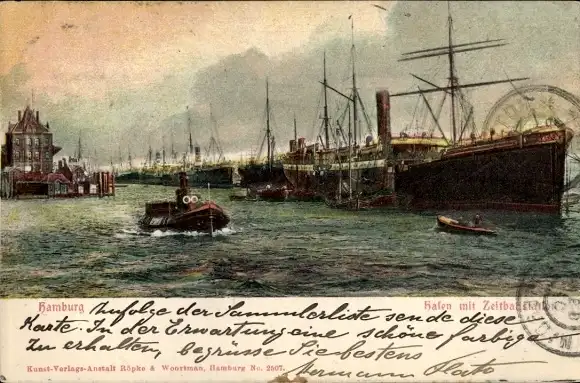 Hamburg
Hafen mit Zeitballstation
Zufolge der Sammlerliste sende diese
Karte. In der Erwartung eine schöne farbige
zu erhalten, begrüsse Sie bestens
Hermann
Kunst-Verlags-Anstalt Röpke & Woortman, Hamburg No. 2507.